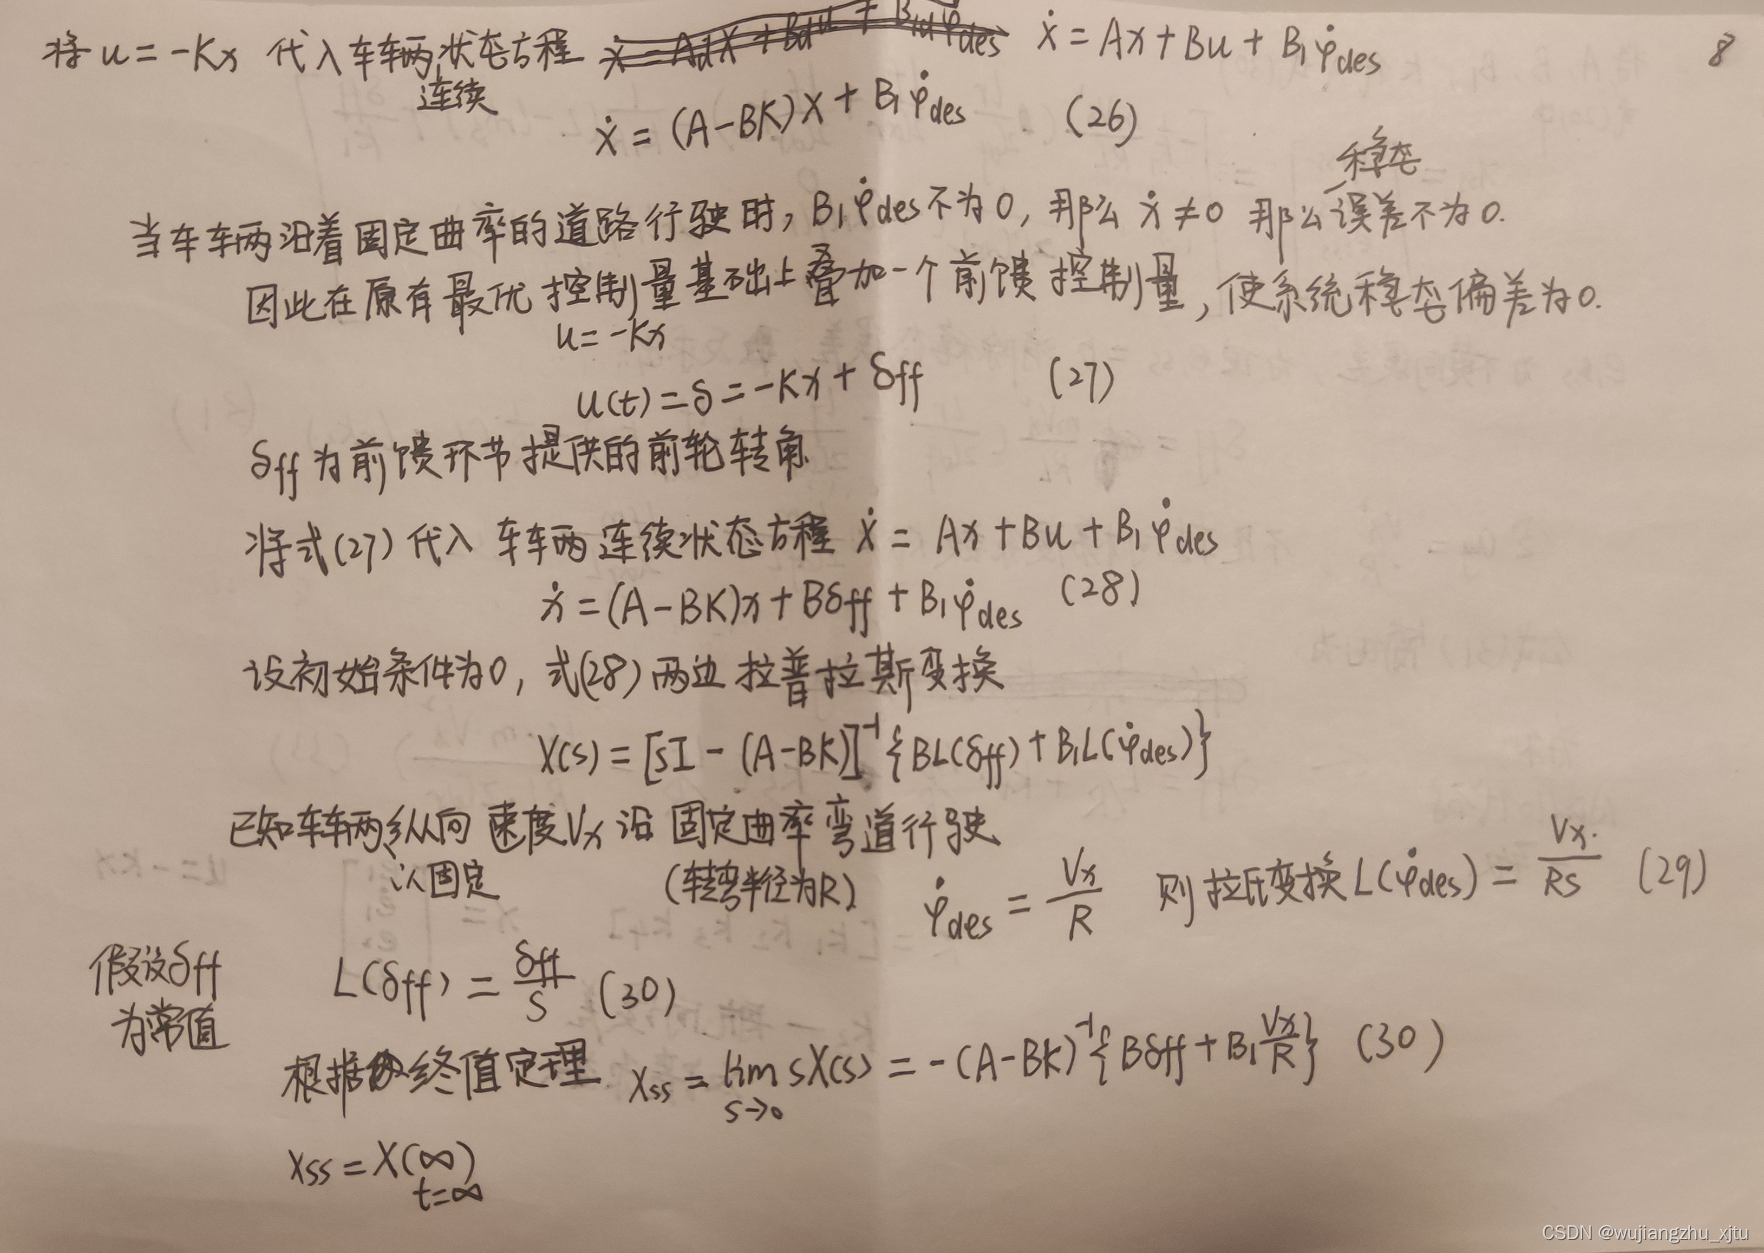 将 u = -Kx 代入车辆连续状态方程 ẋ = Ax + Bu + B₁φ̇des 8
ẋ = (A-BK)X + B₁φ̇des (26)
当车辆沿着固定曲率的道路行驶时, B₁φ̇des不为0, 那么 ẋ ≠ 0 那么稳态误差不为0.
因此在原有最优控制量基础上叠加一个前馈控制量, 使系统稳态偏差为0.
u = -Kx
u(t) = δ = -Kx + δff (27)
δff 为前馈环节提供的前轮转角
将式(27) 代入 车辆连续状态方程 ẋ = Ax + Bu + B₁φ̇des
ẋ = (A-BK)x + Bδff + B₁φ̇des (28)
设初始条件为0, 式(28) 两边拉普拉斯变换
X(s) = [sI - (A-BK)]⁻¹{BL(δff) + B₁L(φ̇des)}
已知车辆以固定纵向速度Vx沿固定曲率弯道行驶
(转弯半径为R) φ̇des = Vx/R 则拉氏变换L(φ̇des) = Vx/RS (29)
假设δff为常值 L(δff) = δff/S (30)
根据终值定理 Xss = lim s→0 sX(s) = -(A-BK)⁻¹{Bδff + B₁Vx/R} (30)
Xss = X(∞)
t=∞
CSDN @wujiangzhu_xjtu